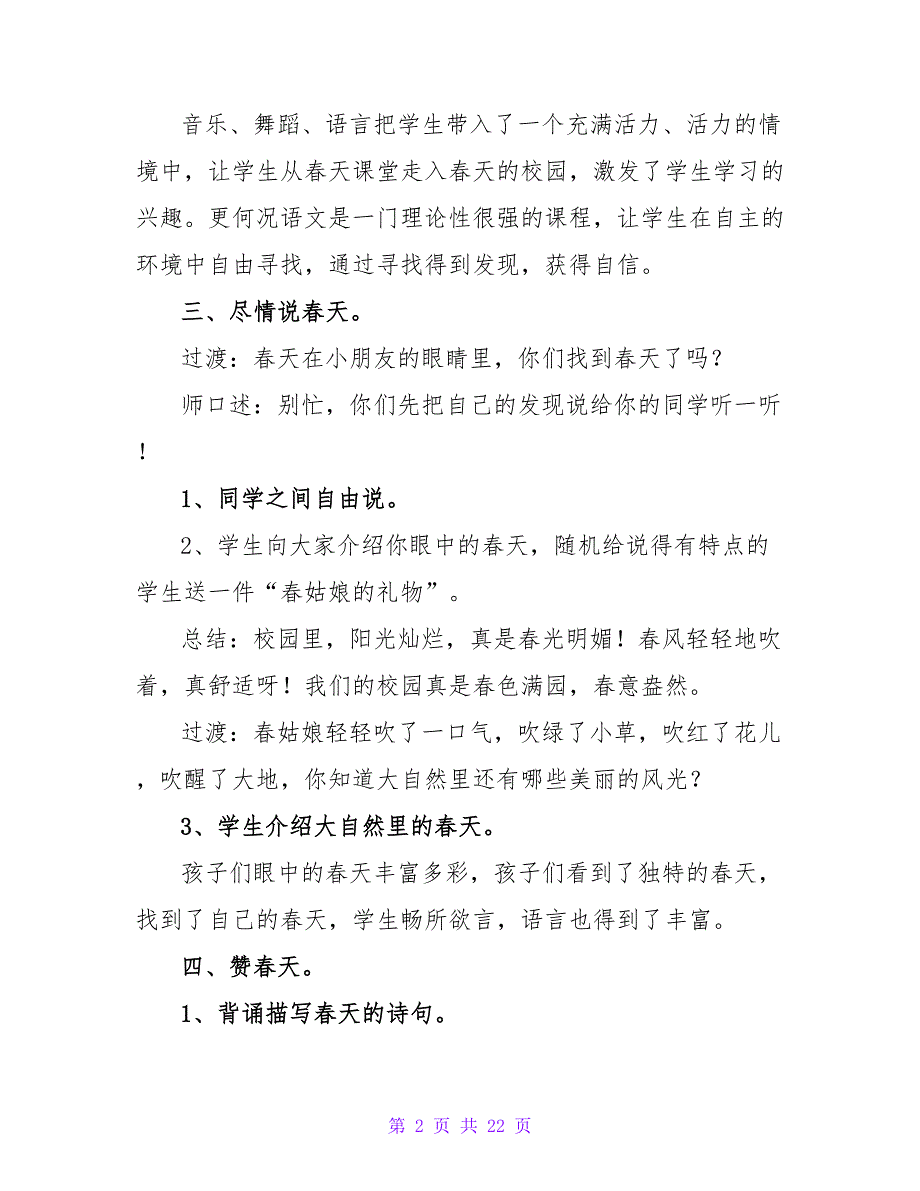 音乐、舞蹈、语言把学生带入了一个充满活力、活力的情
境中，让学生从春天课堂走入春天的校园，激发了学生学习的
兴趣。更何况语文是一门理论性很强的课程，让学生在自主的
环境中自由寻找，通过寻找得到发现，获得自信。
三、尽情说春天。
过渡：春天在小朋友的眼睛里，你们找到春天了吗？
师口述：别忙，你们先把自己的发现说给你的同学听一听
！
1、同学之间自由说。
2、学生向大家介绍你眼中的春天，随机给说得有特点的
学生送一件“春姑娘的礼物”。
总结：校园里，阳光灿烂，真是春光明媚！春风轻轻地吹
着，真舒适呀！我们的校园真是春色满园，春意盎然。
过渡：春姑娘轻轻吹了一口气，吹绿了小草，吹红了花儿
，吹醒了大地，你知道大自然里还有哪些美丽的风光？
3、学生介绍大自然里的春天。
孩子们眼中的春天丰富多彩，孩子们看到了独特的春天，
找到了自己的春天，学生畅所欲言，语言也得到了丰富。
四、赞春天。
1、背诵描写春天的诗句。
第 2 页 共 22 页